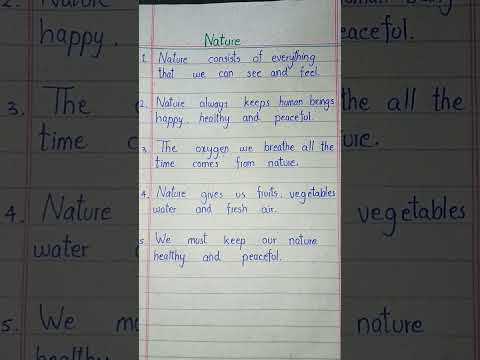 Nature
1. Nature consists of everything
that we can see and feel.
2. Nature always keeps human beings
happy, healthy and peaceful.
3. The oxygen we breathe all the
time comes from nature.
4. Nature gives us fruits, vegetables
water and fresh air.
5. We must keep our nature
healthy and peaceful.